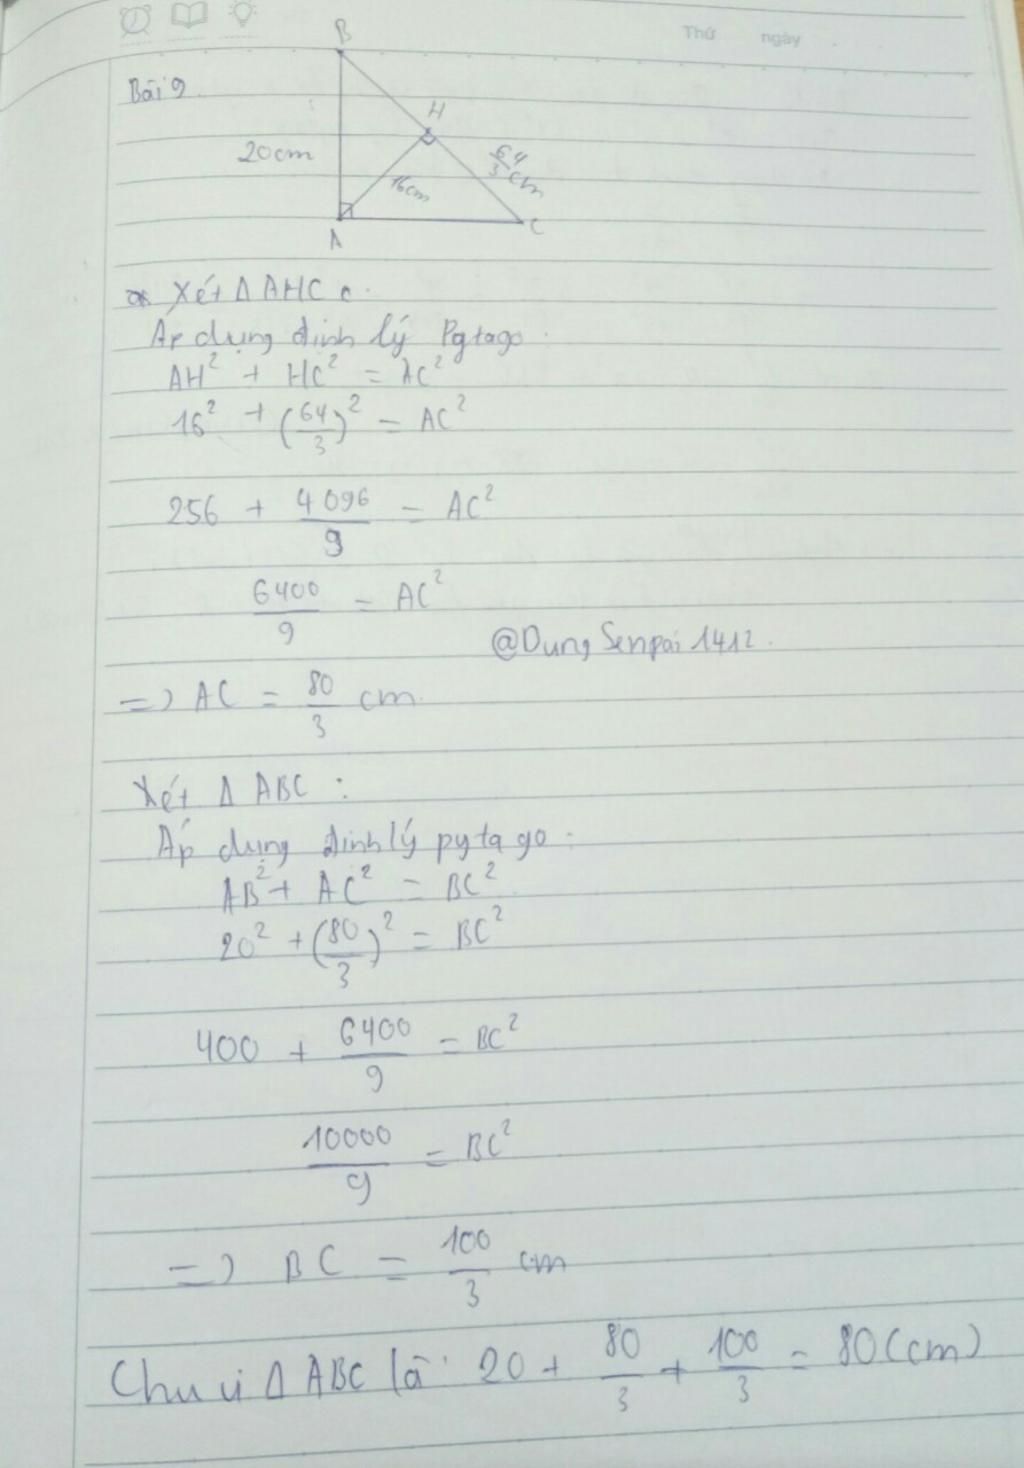 Thứ ngày
Bài 9.
B
H
20cm
64/3 cm
16cm
A
C
Xét Δ AHC
Áp dụng định lý Pytago:
AH² + HC² = AC²
16² + (64/3)² = AC²
256 + 4096/9 = AC²
6400/9 = AC²
@DungSenpai1412.
=> AC = 80/3 cm.
Xét Δ ABC :
Áp dụng định lý pytago:
AB² + AC² = BC²
20² + (80/3)² = BC²
400 + 6400/9 = BC²
10000/9 = BC²
=> BC = 100/3 cm
Chu vi Δ ABC là: 20 + 80/3 + 100/3 = 80 (cm)